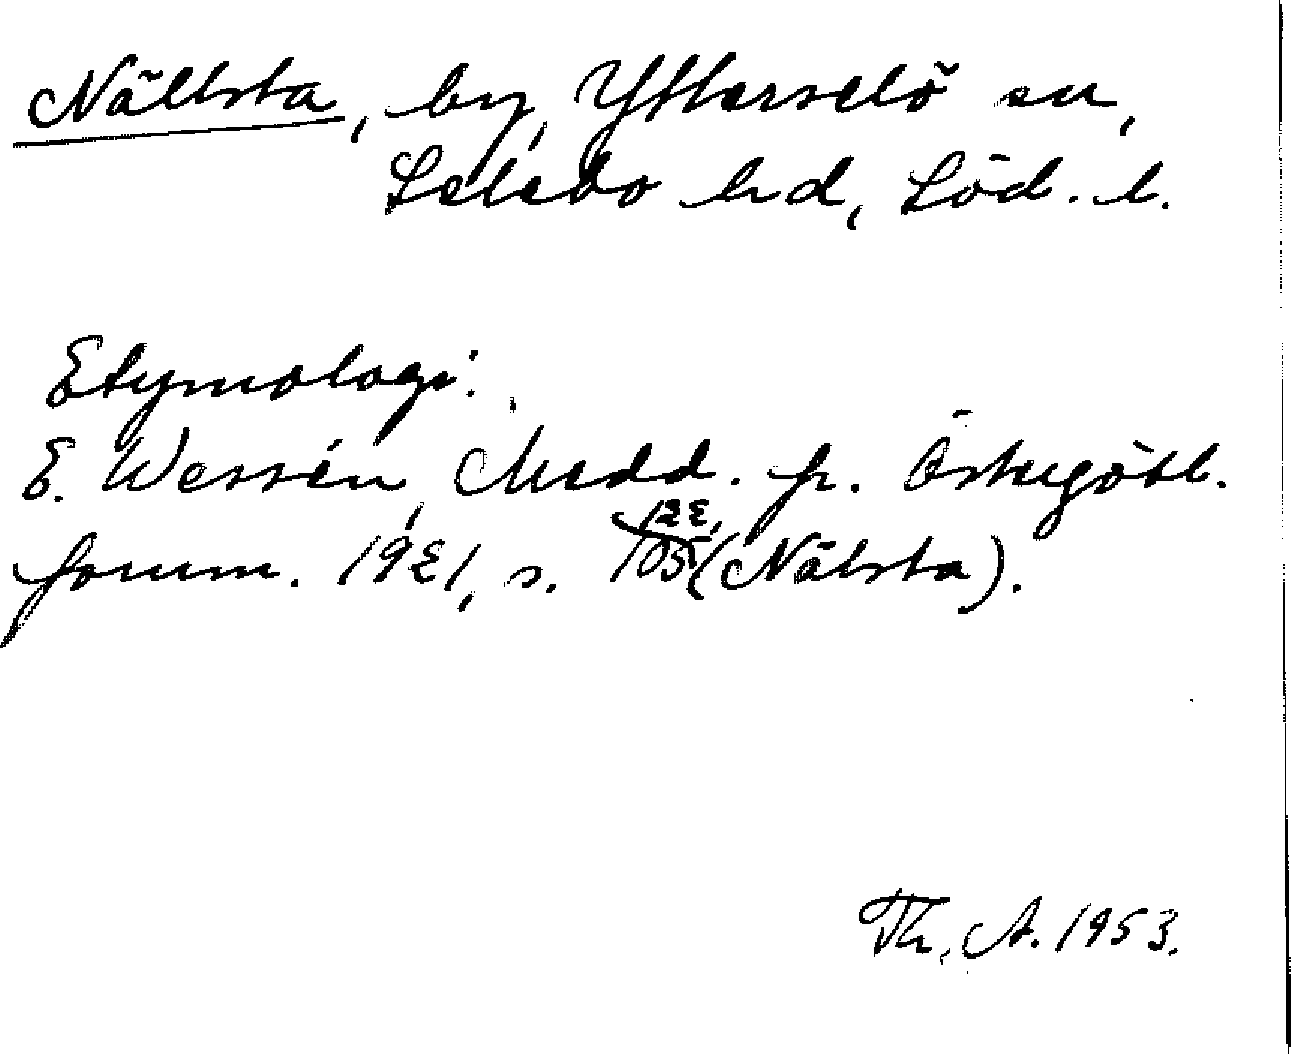 Nällsta, by, Ytterselö sn,
Selebo hd, Söd. l.
Etymologi:
E. Wessén, Medd. fr. Östergötl.
122,
fornm. 1921, s. 105 (Nälsta).
Th. A. 1953.